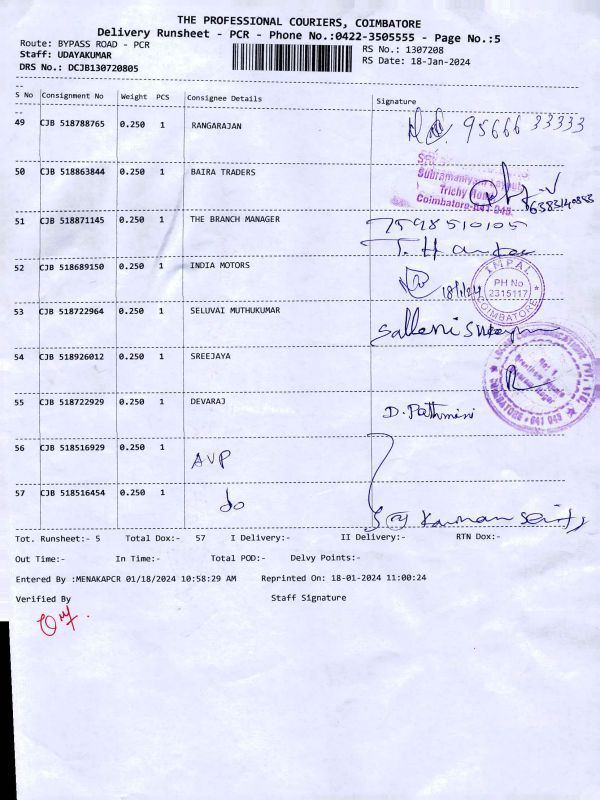 THE PROFESSIONAL COURIERS, COIMBATORE
Delivery Runsheet - PCR - Phone No.:0422-3505555 - Page No.:5
Route: BYPASS ROAD - PCR
RS No.: 1307208
Staff: UDAYAKUMAR
RS Date: 18-Jan-2024
DRS No.: DCJB130720805
S No Consignment No Weight PCS Consignee Details Signature
49 CJB 518788765 0.250 1 RANGARAJAN 95666 33333
50 CJB 518863844 0.250 1 BAIRA TRADERS
Subramaniyam
Trichy
Coimbatore-641 045.
6383140853
51 CJB 518871145 0.250 1 THE BRANCH MANAGER 7598510105
52 CJB 518689150 0.250 1 INDIA MOTORS 18/1/24
IMPAL
PH No
2315117
COIMBATORE
53 CJB 518722964 0.250 1 SELUVAI MUTHUKUMAR
54 CJB 518926012 0.250 1 SREEJAYA
COIMBATORE - 641 045
55 CJB 518722929 0.250 1 DEVARAJ D. Pathmini
56 CJB 518516929 0.250 1 AVP
57 CJB 518516454 0.250 1 do
Tot. Runsheet:- 5 Total Dox:- 57 I Delivery:- II Delivery:- RTN Dox:-
Out Time:- In Time:- Total POD:- Delvy Points:-
Entered By :MENAKAPCR 01/18/2024 10:58:29 AM Reprinted On: 18-01-2024 11:00:24
Verified By Staff Signature